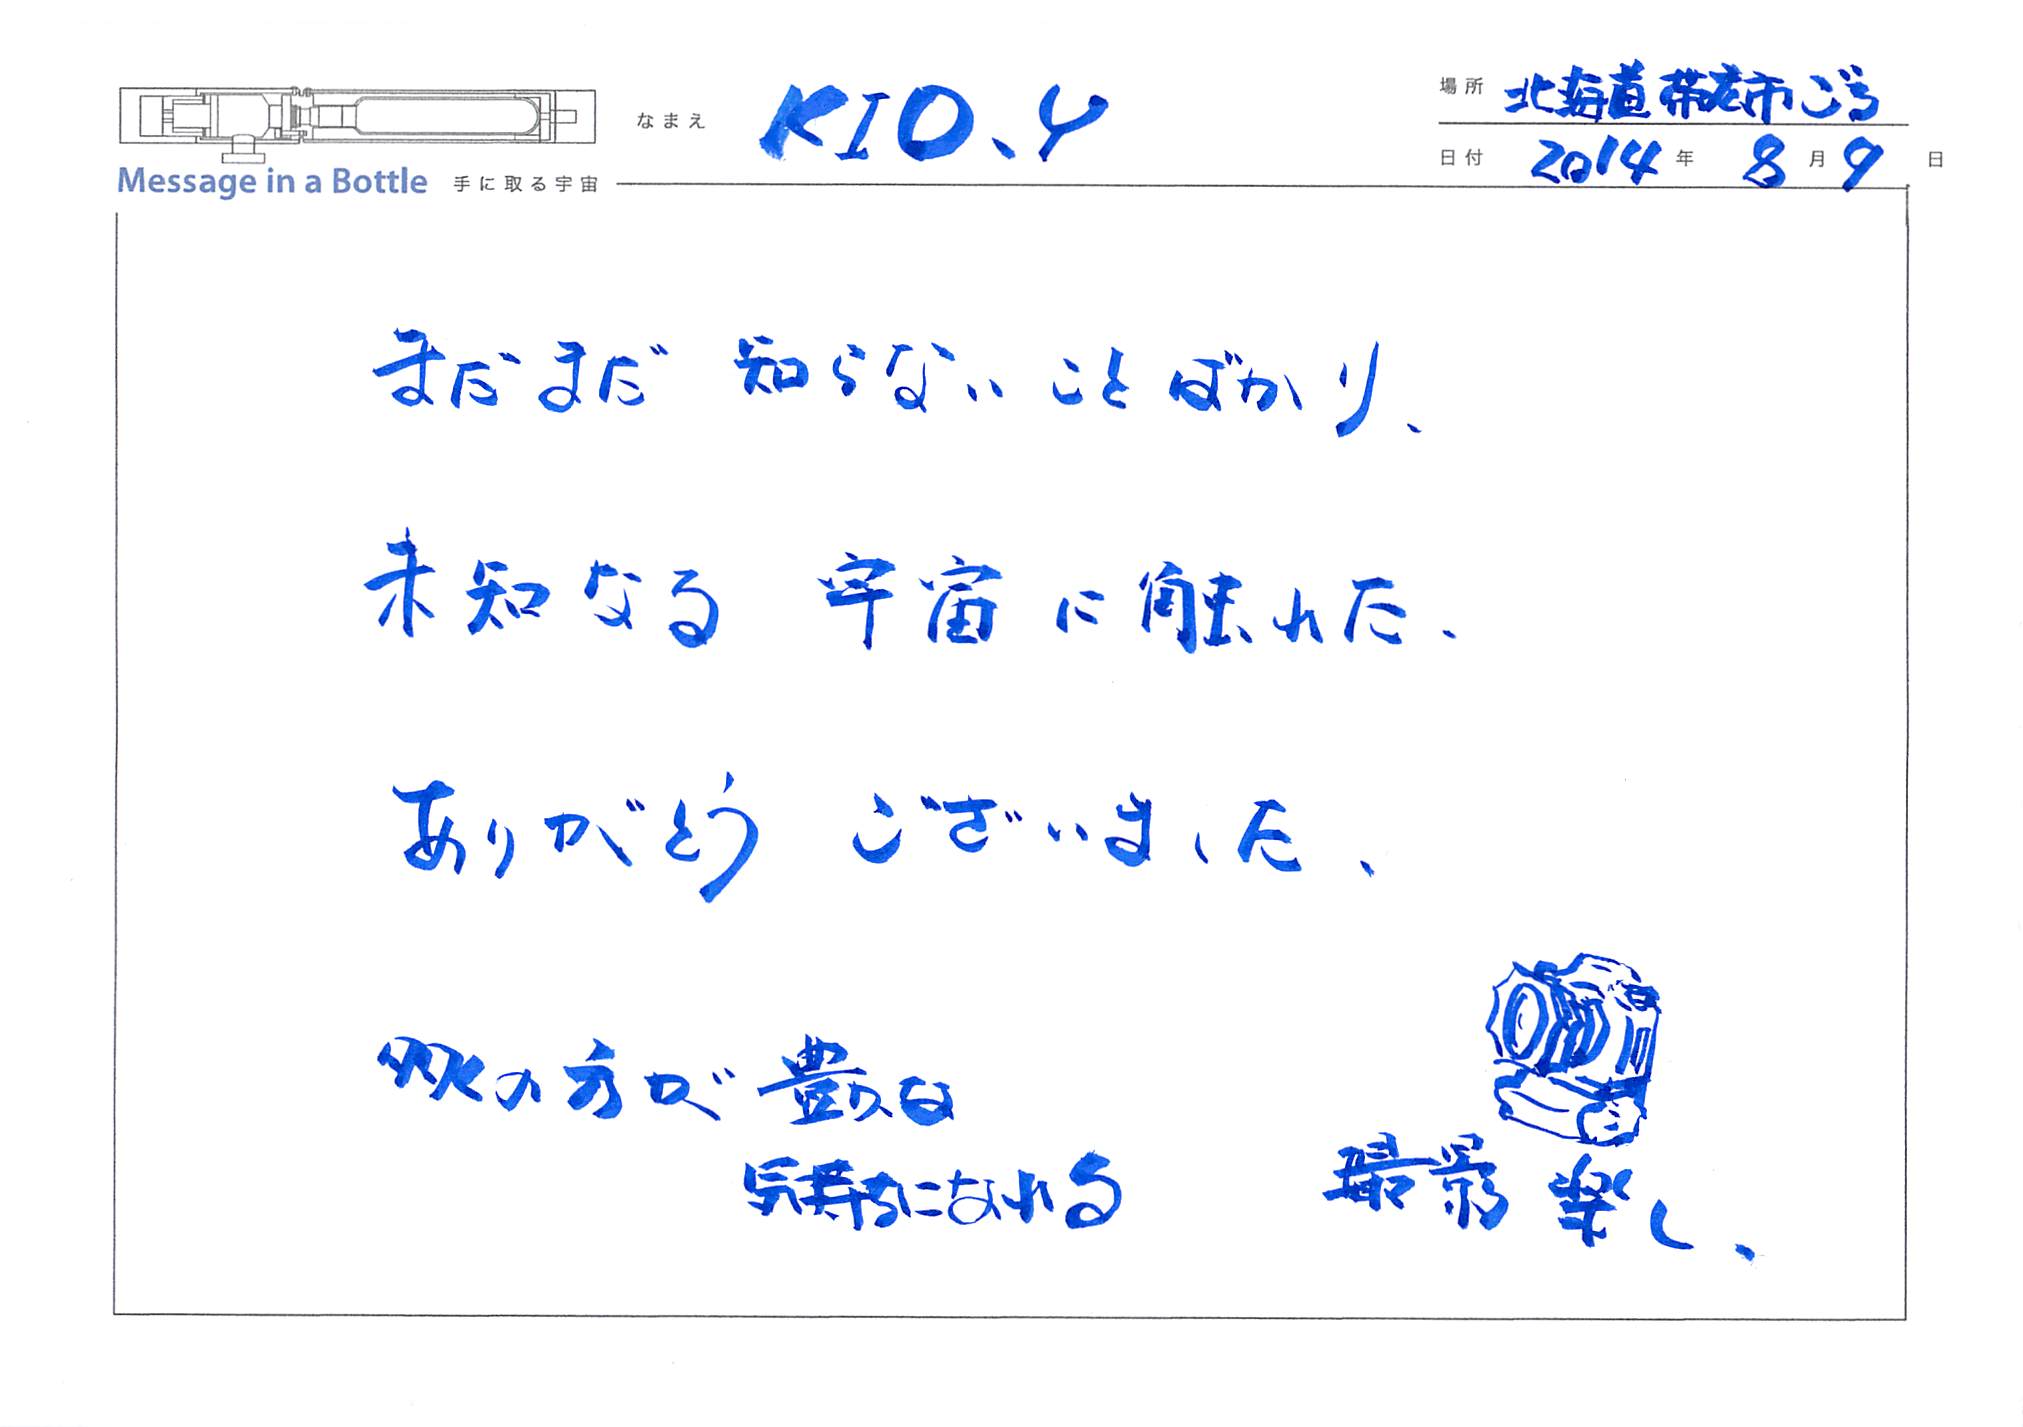 なまえ KIO.Y
場所 北海道帯広市
日付 2014年8月9日
Message in a Bottle 手に取る宇宙
まだまだ 知らないことばかり、
未知なる 宇宙に触れた、
ありがとう ございました、
の方が豊かな
気持ちになれる
撮影 楽し、